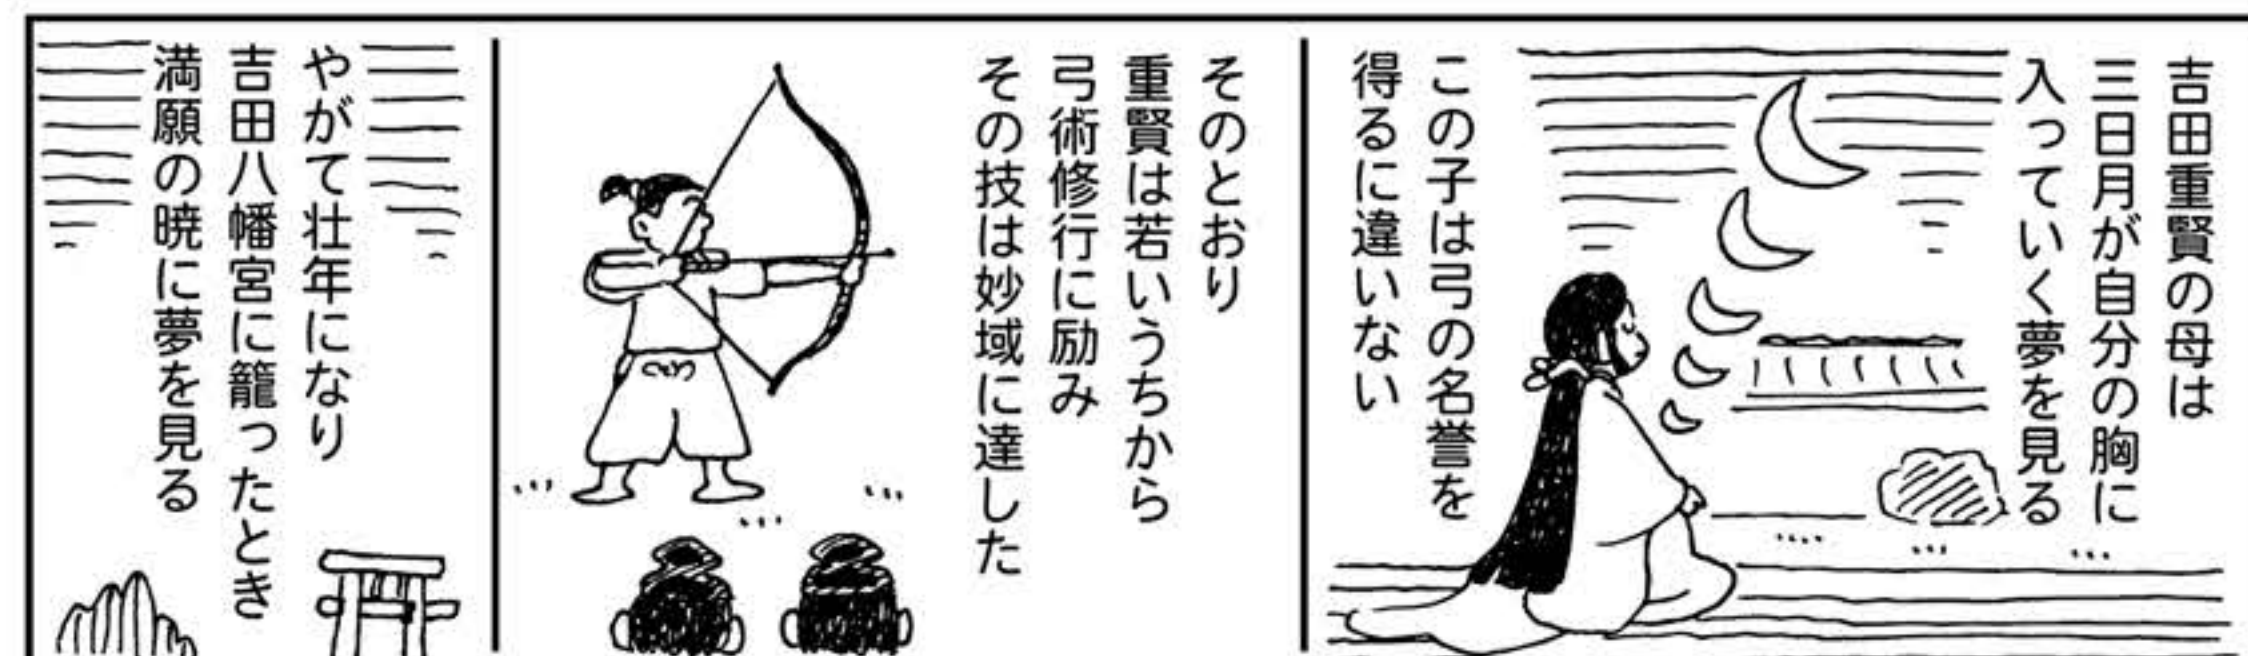 吉田重賢の母は
三日月が自分の胸に
入っていく夢を見る
この子は弓の名誉を
得るに違いない
そのとおり
重賢は若いうちから
弓術修行に励み
その技は妙域に達した
やがて壮年になり
吉田八幡宮に籠ったとき
満願の暁に夢を見る